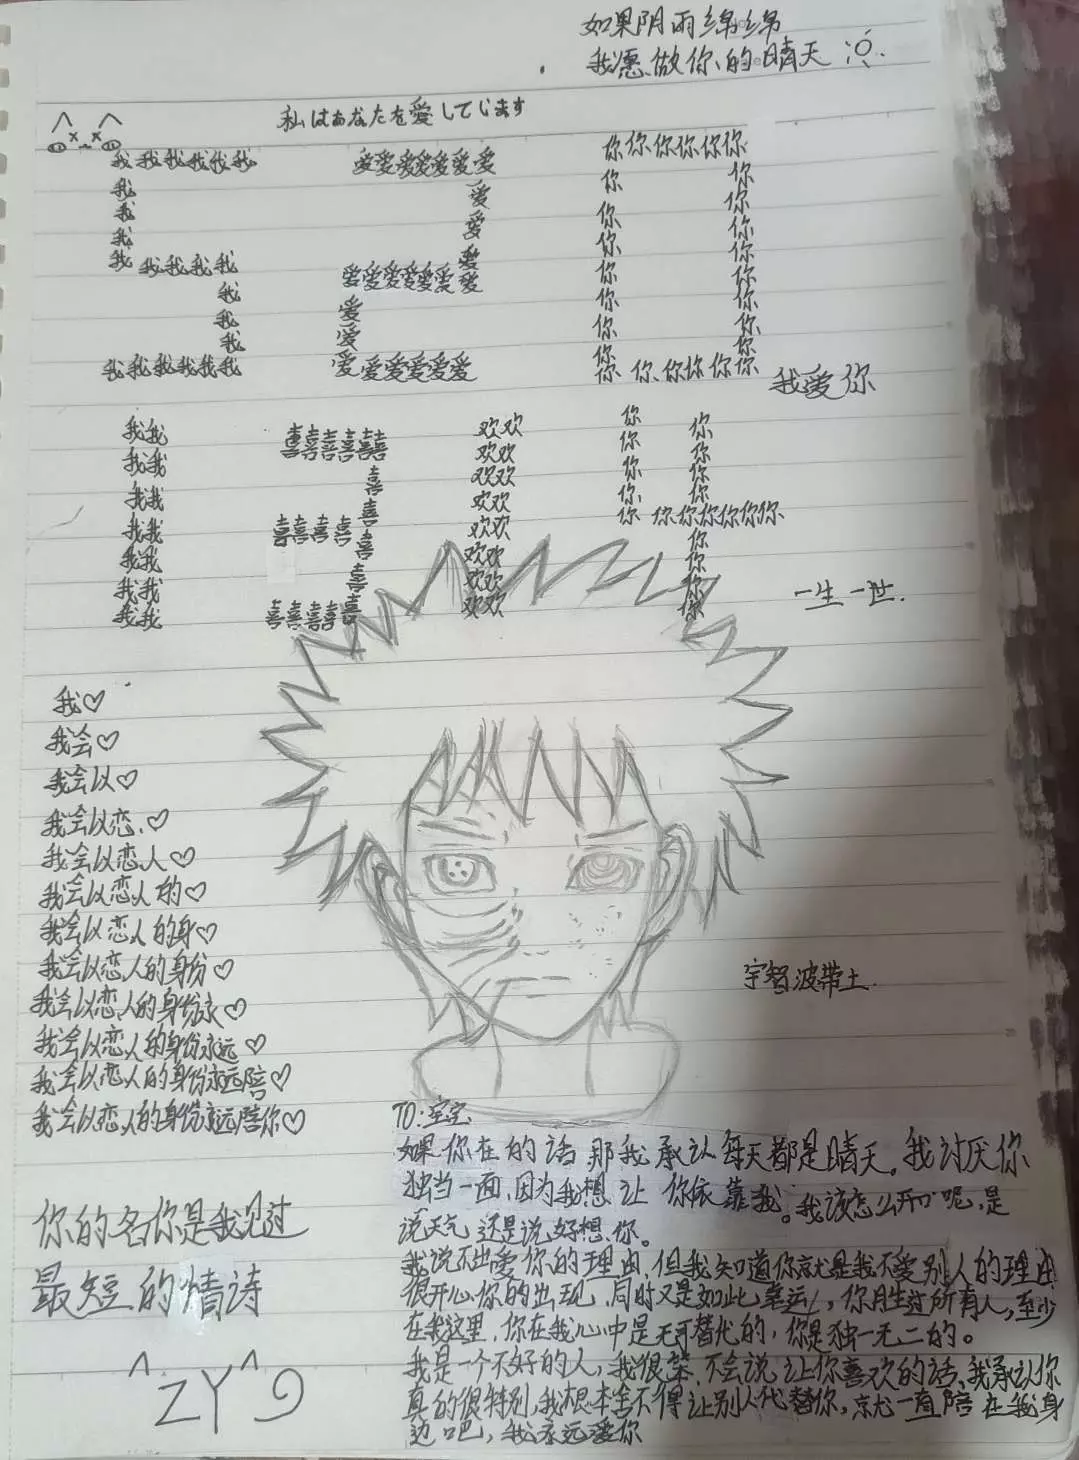 如果阴雨绵绵
我愿做你的晴天
私はあなたを愛しています
我我我我我我 爱爱爱爱爱爱爱 你你你你你你
我 爱 你 你
我 爱 你 你
我 爱 你 你
我我我我我 爱爱爱爱爱爱爱 你 你
我 爱 你 你
我 爱 你 你
我 你 你
我我我我我我 爱爱爱爱爱爱 你你你你你你
我爱你
我我 喜喜喜喜喜 欢欢 你 你
我我 喜 欢欢 你 你
我我 喜 欢欢 你 你
我我 喜喜喜喜 欢欢 你 你
我我 喜 欢欢 你你你你你你你
我我 喜 欢欢 你
我我 喜喜喜喜喜 欢欢 你
欢欢 你
你
一生一世.
我♡
我会♡
我会以♡
我会以恋♡
我会以恋人♡
我会以恋人的♡
我会以恋人的身♡
我会以恋人的身份♡
我会以恋人的身份永♡
我会以恋人的身份永远♡
我会以恋人的身份永远陪♡
我会以恋人的身份永远陪你♡
宇智波带土
你的名你是我见过
最短的情诗
ZY
TO:宝宝
如果你在的话那我承认每天都是晴天。我讨厌你
独当一面,因为我想让你依靠我。我该怎么开口呢,是
说天气还是说好想你。
我说不出爱你的理由,但我知道你就是我不爱别人的理由
很开心你的出现,同时又是如此幸运,你胜过所有人,至少
在我这里,你在我心中是无可替代的,你是独一无二的。
我是一个不好的人,我很笨,不会说让你喜欢的话,我承认你
真的很特别,我根本舍不得让别人代替你,就一直陪在我身
边吧,我永远爱你